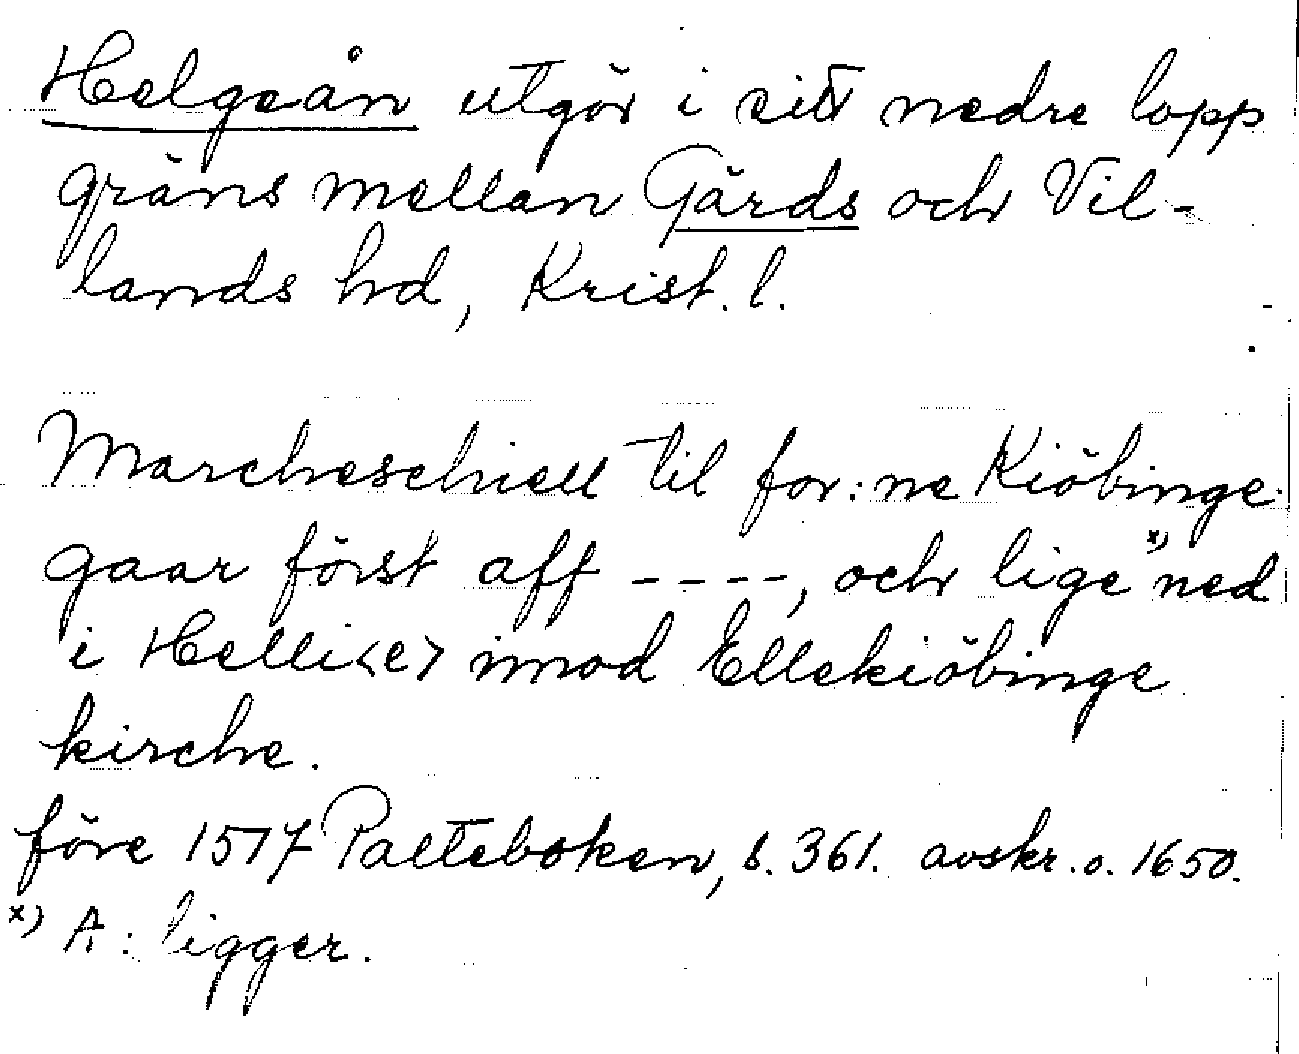 Helgeån utgör i sitt nedre lopp
gräns mellan Gärds och Vil-
lands hd, Krist. l.
Marcheschiell til for:ne Kiöbinge
gaar först aff ----, och lige x) ned
i Helli<e> imod Ellekiöbinge
kirche.
före 1517 Palteboken, s. 361. avskr. o. 1650.
x) A: ligger.